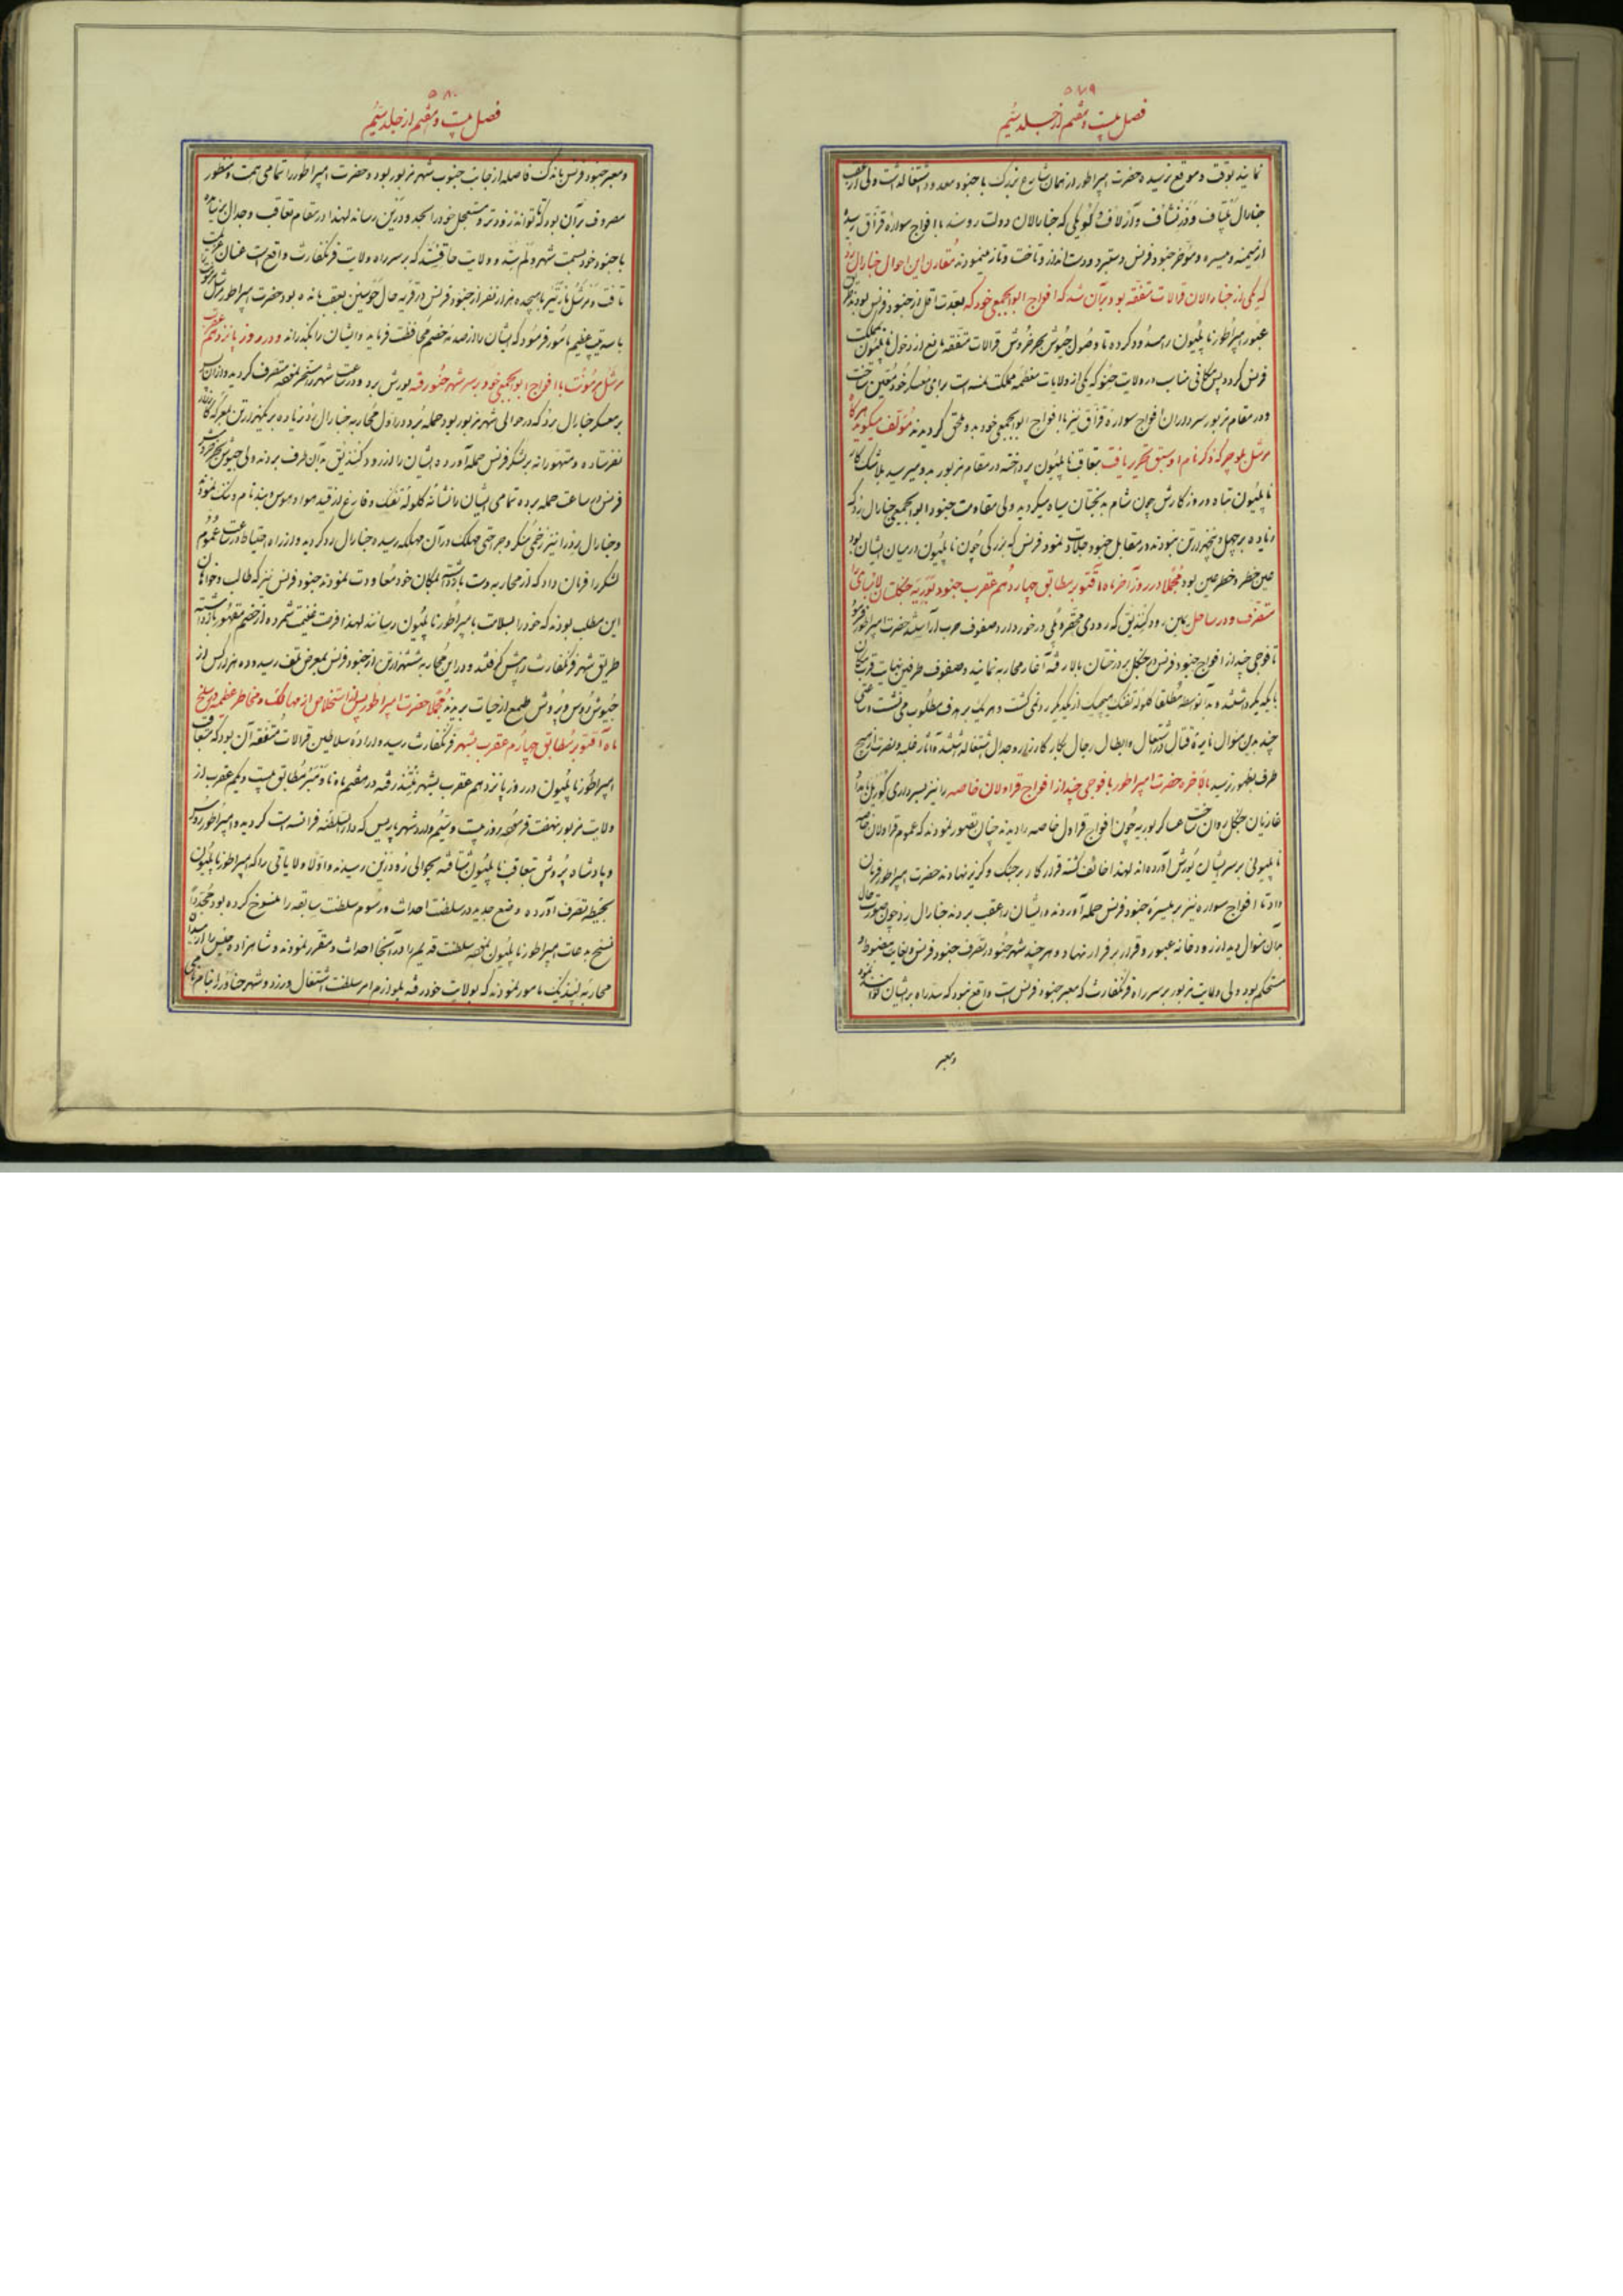 ۵۷۹
فصل بیست و هفتم از جلد سیُم
نمایند بوقت و موقع نرسید و حضرت امپراطور از همان شارع بزرک با جنود معدود اشتغال داشت ولی از عقب
جنارال و آژلاف و که جنارالان دولت روسند با افواج سواره قزاق رسیده
از میمنه و میسره و مؤخر جنود فرنس دستبرد و دست انداز و تاخت و تاز مینمودند مقارن این احوال جنارال رذ
که یکی از جنارالان قرالات متفقه بود بر آن شد که افواج ابوابجمعی خود که بعدت اقل از جنود فرنس بودند
عبور امپراطور ناپلیون را مسدود کرده تا وصول جیوش بحر خروش قرالات متفقه مانع از دخول ناپلیون بمملکت
فرنس کردد پس مکانی مناسب در ولایت حنو که یکی از ولایات معظمه مملکت است برای معسکر خود معین ساخت
و در مقام مزبور سرداران افواج سواره قزاق نیز با افواج ابوابجمعی خود بدو ملحق کردیدند مؤلف میکوید هرکاه
مرشل بلوچر که ذکر نام او سبق تحریر یافت بتعاقب ناپلیون پرداخته در مقام مزبور بدو میرسید بلاشک کار
ناپلیون تباه و روز کارش چون شام بدبختان سیاه میکردید ولی مقاومت جنود ابوابجمعی جنارال رذ که
زیاده بر چهل و پنجهزار تن نبودند در مقابل جنود فرنس که بزرکی چون ناپلیون در میان ایشان بود
عین خطر و خطر عین بود مجملا در روز آخر ماه اقتوبر مطابق چهاردهم عقرب جنود بوربه جنکلستان لانبای را
متصرف و در ساحل یمین رود کنذیق که رودی محقر و پلی در خور دارد صفوف حرب آراستند حضرت امپراطور فرمود
تا فوجی چند از افواج جنود فرنس در جنکل بر درختان بالا رفته آغاز محاربه نمایند و صفوف طرفین بغایت قریب مکان
بایکدیکر داشتند و بدانواسطه مطلقا کلوله تفنک هیچیک از یکدیکر رد نمی کشت و هر یک بر هدف مطلوب می نشست و ساعتی
چند بدین منوال نایره قتال در اشتعال و ابطال رجال بکار کارزار و جدال اشتغال داشتند و آثار غلبه و نصرت از هیچ
طرف بظهور نرسید بالاخره حضرت امپراطور با فوجی چند از افواج قراولان خاصه را نیز بسرداری
غازیان جنکل روان ساخت عساکر بوربه چون افواج قراول خاصه را دیدند چنان تصور نمودند که عموم قراولان خاصه
ناپلیونی بر سر ایشان یورش آورده اند لهذا خائف کشته قرار کار بر جنک و کریز نهادند حضرت امپراطور فرمان
داد تا افواج سواره نیز بر میسره جنود فرنس حمله آوردند و ایشان را عقب بردند جنارال رذ چون صورت حال
بدان منوال دید از رودخانه عبور و قرار بر فرار نهاد و هر چند شهر حنو در تصرف جنود فرنس و بغایت مضبوط و
مستحکم بود ولی ولایت مزبور بر سر راه فرنکفارت که معبر جنود فرنس است واقع نبود که سد راه بر ایشان تواند نمود
و معبر
۵۸۰
فصل بیست و هفتم از جلد سیُم
و معبر جنود فرنس باندک فاصله از جانب جنوب شهر مزبور بود و حضرت امپراطور را تمامی همت و منظور
مصروف بر آن بود که تا تواند زودتر و مستعجل خود را بحد رین رساند لهذا در مقام تعاقب و جدال بر نیامده
با جنود خود بسمت شهر و ولایت که بر سر راه ولایت فرنکفارت واقع است عنان عزیمت
تافت و مرشل با هیجده هزار نفر از جنود فرنس در قریه حال بعقب مانده بود حضرت امپراطور مرشل
با سه تیپ عظیم مأمور فرمود که ایشان را از صدمه خصم محافظت فرماید و ایشان را بکذراند و در روز پانزدهم عقرب
مرشل برمونت با افواج ابوابجمعی خود بر سر شهر حنو رفته یورش برد و در ساعت شهر را مسخر نموده متصرف کردید و از آن پس
بر معسکر جنارال رذ که در حوالی شهر مزبور بود حمله برد و در اول محاربه جنارال رذ زیاده بر یکهزار تن بمعرکه کارزار
نفرستاده و متهورانه بر لشکر فرنس حمله آورده ایشان را از رود کنذیق بدان طرف بردند ولی جیوش بحر خروش
فرنس در ساعت حمله برده تمامی ایشان را نشانه کلوله تفنک و فارغ از قید هوا و هوس و بند نام و ننک نمودند
و جنارال رذ را نیز زخمی منکر و جراحتی مهلک در آن مهلکه رسید و جنارال رد کردید و از راه احتیاط در ساعت عموم
لشکر را فرمان داد که از محاربه دست بازداشته بمکان خود معاودت نمودند جنود فرنس نیز که طالب و خواهان
این مطلب بودند که خود را بسلامت بامپراطور ناپلیون رسانند لهذا فرصت غنیمت شمرده از خصم مقهور باز داشته
طریق شهر فرنکفارت را پیش کرفتند و در این محاربه ششهزار تن از جنود فرنس بمعرض تلف رسید و ده هزار کس از
جیوش روس و پروش طمع از حیات بریدند مجملا حضرت امپراطور پس از استخلاص از مهالک و مخاطر عظیمه در سلخ
ماه اقتوبر مطابق چهاردهم عقرب بشهر فرنکفارت رسید و اراده سلاطین قرالات متفقه آن بود که متعاقب
امپراطور ناپلیون در روز پانزدهم عقرب بشهر رفته در هفتم ماه نومبر مطابق بیست و یکم عقرب از
ولایت مزبور نهضت فرموده روز بیست و سیم وارد شهر پاریس که دار السلطنه فرانسه است کردید و امپراطور روس
و پادشاه پروش بتعاقب ناپلیون شتافته بحوالی رود رین رسیدند و اولا ولایاتی را که امپراطور ناپلیون
بحیطه تصرف آورده وضع جدید در سلطنت احداث و رسوم سلطنت سابقه را منسوخ کرده بود مجددا
فسخ بدعات امپراطور ناپلیون نموده سلطنت قدیم را در آنجا احداث و مقرر نمودند و شاهزاده
محاربه مأمور نمودند که بولایت خود رفته بلوازم امر سلطنت اشتغال ورزد و شهر